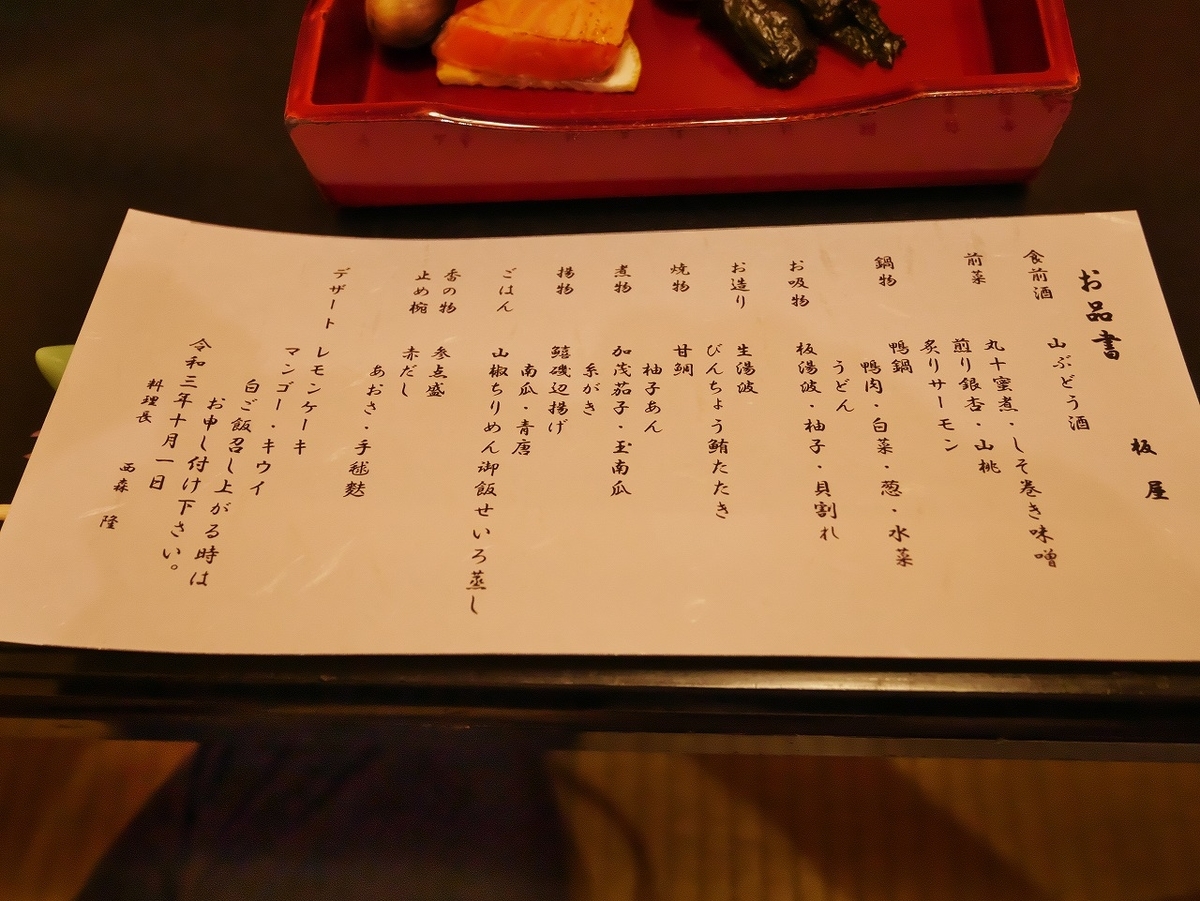 お品書
板屋
食前酒
山ぶどう酒
前菜
丸十蜜煮・しそ巻き味噌
煎り銀杏・山桃
炙りサーモン
鍋物
鴨鍋
鴨肉・白菜・葱・水菜
うどん
お吸物
板湯波・柚子・貝割れ
お造り
生湯波
びんちょう鮪たたき
焼物
甘鯛
柚子あん
煮物
加茂茄子・玉南瓜
糸がき
揚物
鱚磯辺揚げ
南瓜・青唐
ごはん
山椒ちりめん御飯せいろ蒸し
香の物
参点盛
止め椀
赤だし
あおさ・手毬麩
デザート
レモンケーキ
マンゴー・キウイ
白ご飯召し上がる時は
お申し付け下さい。
令和三年十月一日
料理長
西森 隆